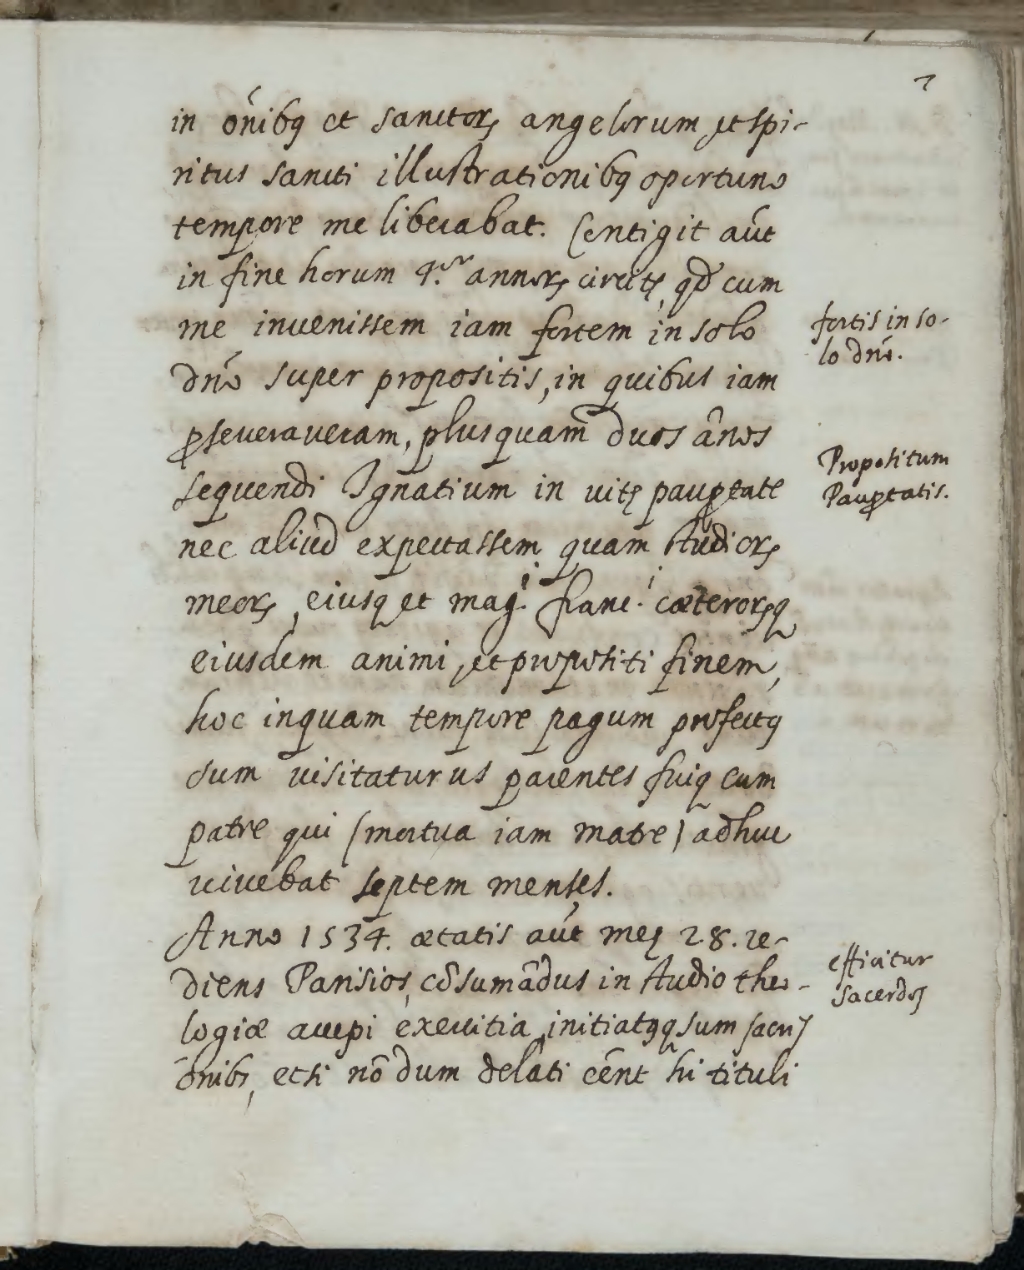 7
in õnibꝰ et sanctorꝝ angelorum et spi-
ritus sancti illustrationibꝰ oportuno
tempore me liberabat. Contigit aũt
in fine horum 4.or annorꝝ circitꝝ, qđ cum
me invenissem iam fortem in solo
dño super propositis, in quibus iam
ꝑseveraveram, plusquam duos ãnos
sequendi Ignatium in vitę pauꝑtate
nec aliud expectassem quam studiorꝝ
meorꝝ, eiusqꝫ et mag.i Franc.i cæterorꝝqꝫ
eiusdem animi, et propositi finem,
hoc inquam tempore pagum profectꝰ
sum visitaturus parentes fuiqꝫ cum
patre qui (mortua iam matre) adhuc
vivebat septem menses.
Anno 1534. ætatis aũt meę 28. re-
diens Parisios, cõsumãdus in studio theo-
logiæ accepi exercitia, initiatꝰqꝫ sum sacris
õnibꝰ, etsi nõ dum delati eẽnt hi tituli
fortis in so-
lo dño.
Propositum
Pauꝑtatis.
efficitur
sacerdos